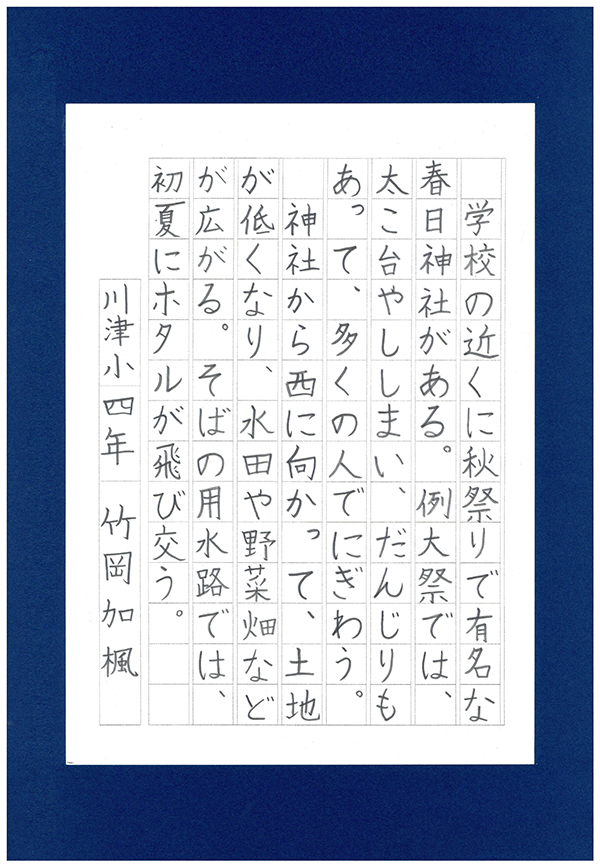 学校の近くに秋祭りで有名な
春日神社がある。例大祭では、
太こ台やししまい、だんじりも
あって、多くの人でにぎわう。
　神社から西に向かって、土地
が低くなり、水田や野菜畑など
が広がる。そばの用水路では、
初夏にホタルが飛び交う。
川津小四年　竹岡加楓